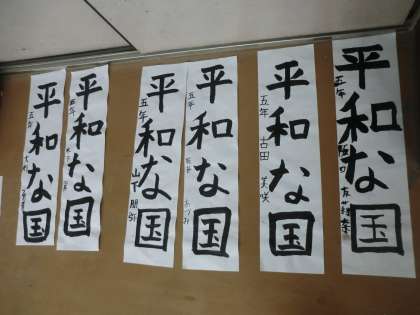 平和な国
五年
平和な国
五年
平和な国
五年 山下 朋弥
平和な国
五年 あづみ
平和な国
五年 古田 美咲
平和な国
五年